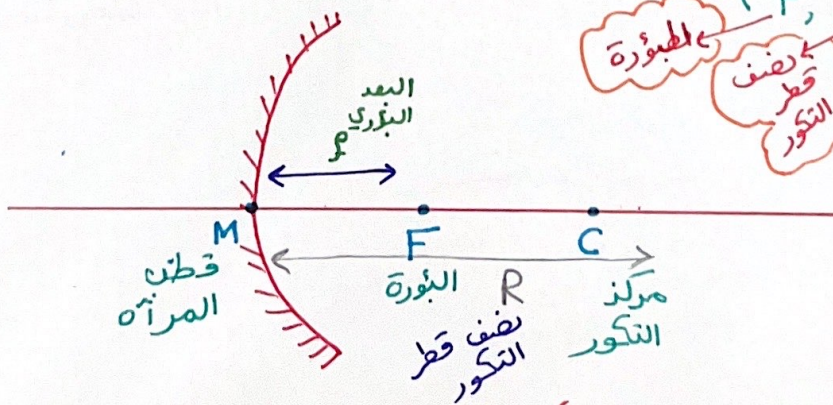 المبؤرة
نصف
قطر
التكور
البعد
البؤري
f
M
F
C
قطب
المرآة
البؤرة
R
نصف قطر
التكور
مركز
التكور